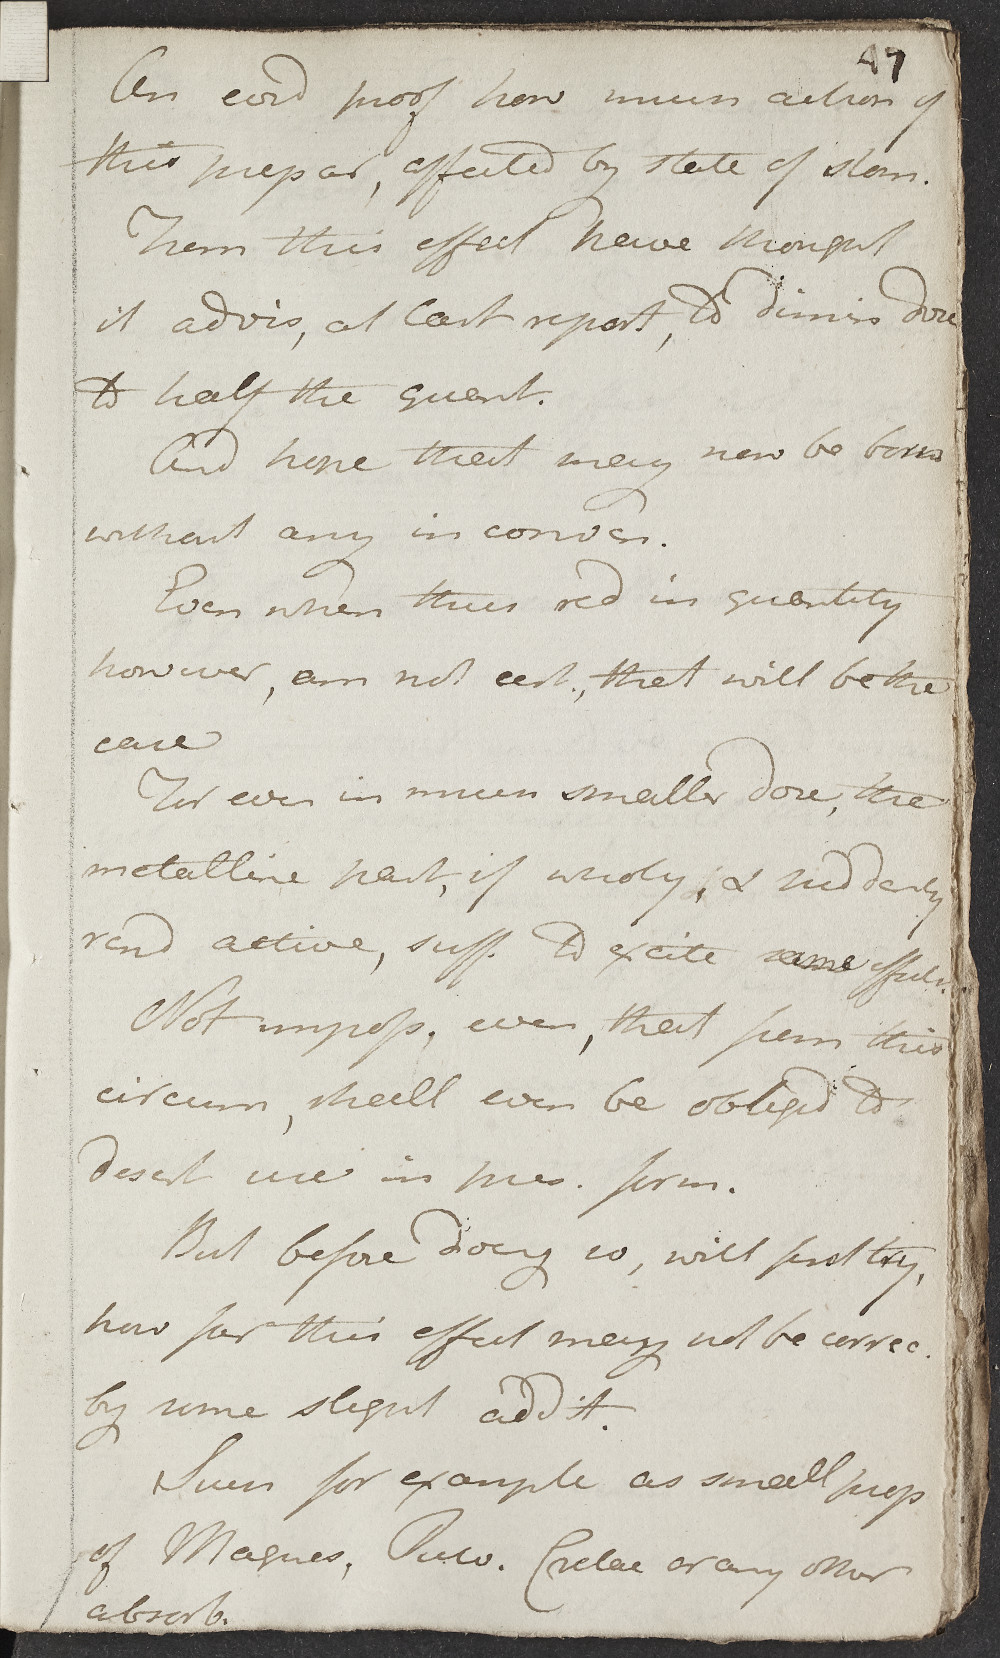 47
An evid proof how much action of
this prepar, affected by state of stom.
From this effect have thought
it advis, at last report, to dimin dose
to half the quant.
And hope that may now be borne
without any inconven.
Even when thus red in quantity
however, am not cert., that will be the
case
For even in much smaller dose, the
metalline part, if wholy, & suddenly
rend active, suff. to excite same effects.
Not imposs. even, that from this
circum, shall even be obliged to
desert use in pres. form.
But before doing so, will first try,
how far this effect may not be correc.
by some slight addit.
Such for example as small prop
of Magnes, Pulv. Cretae or any other
absorb.